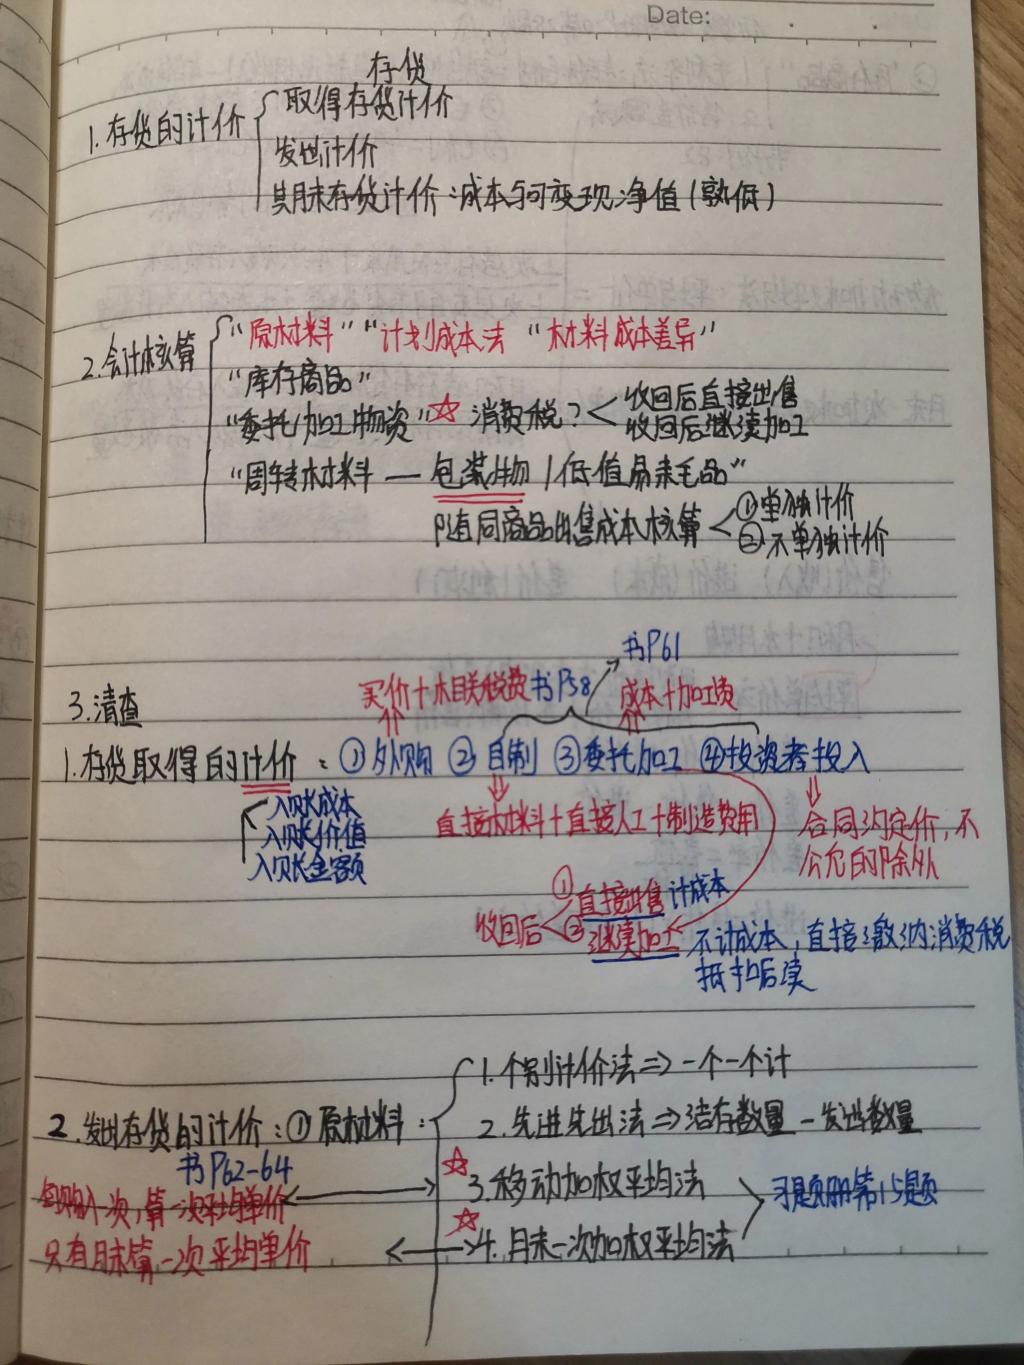 Date:
存货
1.存货的计价
取得存货计价
发出计价
期末存货计价:成本与可变现净值(孰低)
2.会计核算
"原材料" "计划成本法 "材料成本差异"
"库存商品"
"委托加工物资"☆ 消费税?
收回后直接出售
收回后继续加工
"周转材料 — 包装物/低值易耗品"
随同商品出售成本核算
①单独计价
②不单独计价
3.清查
书P61
买价+相关税费 书P58 成本+加工费
1.存货取得的计价:①外购 ②自制 ③委托加工 ④投资者投入
入账成本
入账价值
入账金额
直接材料+直接人工+制造费用
合同约定价,不
公允的除外
收回后
①直接出售 计成本
②继续加工 不计成本,直接缴纳消费税
抵扣后续
2.发出存货的计价:①原材料:
书P62-64
1.个别计价法⇒一个一个计
2.先进先出法⇒结存数量-发出数量
☆3.移动加权平均法
☆4.月末一次加权平均法
习题册第15题
每购入一次,算一次平均单价
只有月末算一次平均单价